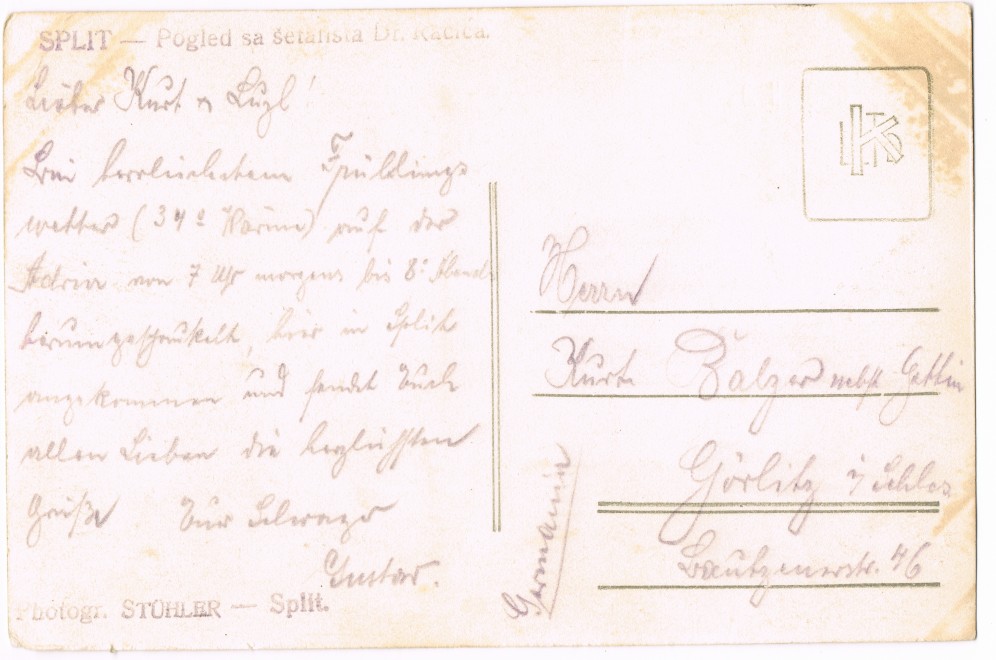 SPLIT — Pogled sa šetališta Dr. Račića.
Lieber Kurt u Luzl!
Bei herrlichstem Frühlings
wetter (34° Wärme) auf der
Adria von 7 Uhr morgens bis 8° Abends
herumgeschaukelt, hier in Split
angekommen und sendet Euch
allen Lieben die herzlichsten
Grüße Euer Schwager
Gustav.
Photogr. STÜHLER — Split.
Herrn
Kurt nebst Gattin
Görlitz i/Schles
Bautzenerstr. 46
Germania